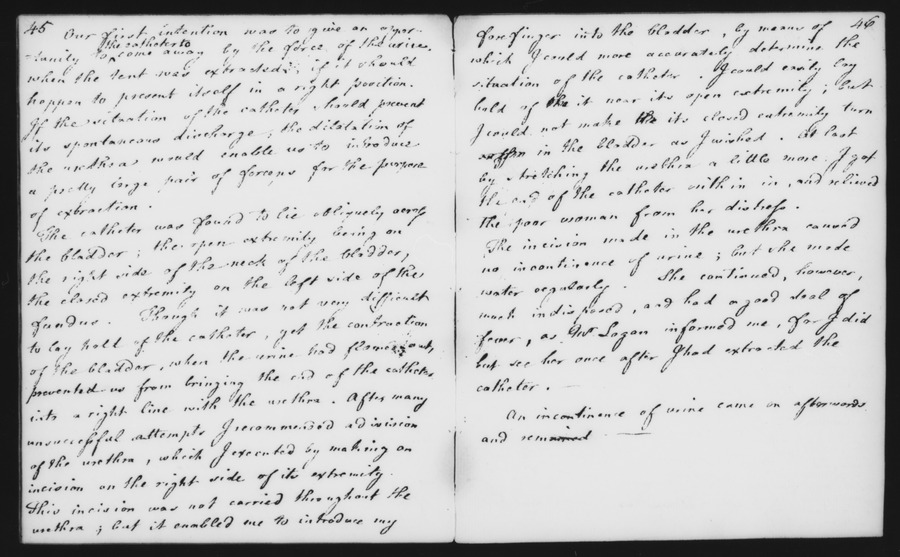 45
Our first intention was to give an oppor-
the catheter to
-tunity to come away by the force of the urine,
when the tent was extracted; if it should
happen to present itself in a right position.
If the situation of the catheter should prevent
its spontaneous discharge; the dilatation of
the urethra would enable us to introduce
a pretty large pair of forceps for the purpose
of extraction.
The catheter was found to lie obliquely across
the bladder; the open extremity being on
the right side of the neck of the bladder,
the closed extremity on the left side of the
fundus. Though it was not very difficult
to lay hold of the catheter, yet the contraction
of the bladder, when the urine had flowed out,
prevented us from bringing the end of the catheter
into a right line with the urethra. After many
unsuccessful attempts I recommended a division
of the urethra, which I executed by making an
incision on the right side of its extremity.
This incision was not carried throughout the
urethra; but it enabled me to introduce my
46
forefinger into the bladder, by means of
which I could more accurately determine the
situation of the catheter. I could easily lay
hold of the it near its open extremity; but
I could not make the its closed extremity turn
in the bladder as I wished. At last
by stretching the urethra a little more I got
the end of the catheter within in, and relieved
the poor woman from her distress.
The incision made in the urethra caused
no incontinence of urine; but she made
water regularly. She continued, however,
much indisposed, and had a good deal of
fever, as Mr Logan informed me, for I did
but see her once after I had extracted the
catheter. —
An incontinence of urine came on afterwards
and remained —